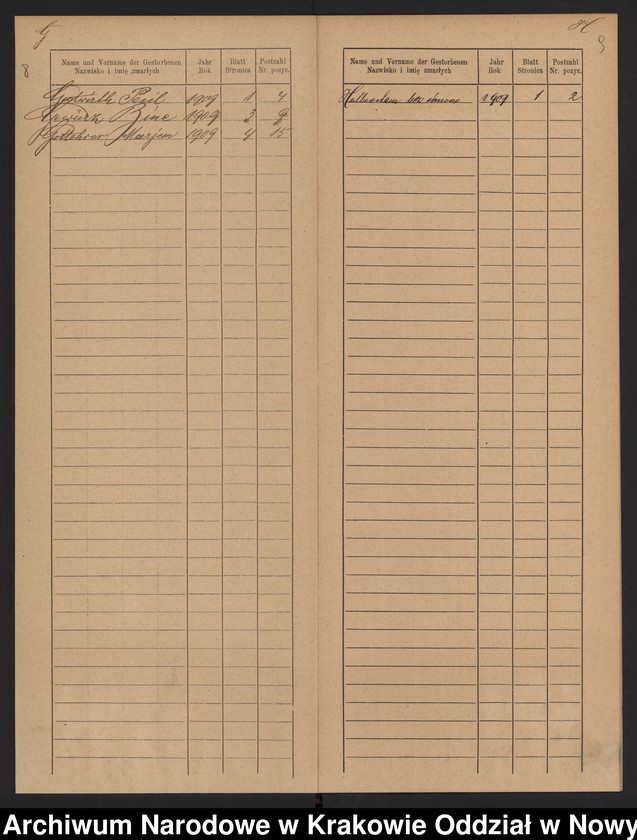 G
8
Name und Vorname der Gestorbenen
Nazwisko i imię zmarłych
Jahr
Rok
Blatt
Stronica
Postzahl
Nr. pozyc.
Gotwirth Pezil 1909 1 4
Bine 1909 3 9
Marjem 1909 4 15
H
9
Name und Vorname der Gestorbenen
Nazwisko i imię zmarłych
Jahr
Rok
Blatt
Stronica
Postzahl
Nr. pozyc.
bez imienia 1909 1 2
Archiwum Narodowe w Krakowie Oddział w Nowy